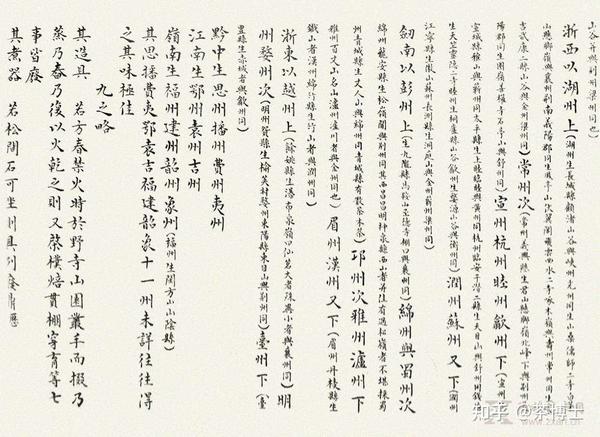 山谷并與荊州梁州同也)
浙西以湖州上(湖州生長城縣顧渚山谷與峽州光州同生山桑儒師二寺白茅
山懸腳嶺與襄州荊南義陽郡同生鳳亭山伏翼閣飛雲曲水二寺啄木嶺與壽州常州同生安
吉武康二縣山谷與金州梁州同)常州次(常州義興縣生君山懸腳嶺北峰下與荊州義
陽郡同生圈嶺善權寺石亭山與舒州同)宣州杭州睦州歙州下(宣州生
宣城縣雅山與蘄州同太平縣生上睦臨睦與黃州同杭州臨安於潛二縣生天目山與舒州同錢塘
生天竺靈隱二寺睦州生桐廬縣山谷歙州生婺源山谷與衡州同)潤州蘇州又下(潤州
江寧縣生傲山蘇州長洲縣生洞庭山與金州蘄州梁州同)
劍南以彭州上(生九隴縣馬鞍山至德寺棚口與襄州同)綿州與蜀州次
綿州龍安縣生松嶺關與荊州同其西昌昌明神泉縣西山者並佳有過松嶺者不堪採蜀
州青城縣生丈人山與綿州同青城縣有散茶木茶)邛州次雅州瀘州下
雅州百丈山名山瀘州瀘川者與金州同也)眉州漢州又下(眉州丹棱縣生
鐵山者漢州綿竹縣生竹山者與潤州同)
浙東以越州上(餘姚縣生瀑布泉嶺曰仙茗大者殊異小者與襄州同)明
州婺州次(明州貿縣生榆莢村婺州東陽縣東目山與荊州同)臺州下(臺
豐縣生赤城者與歙州同)
黔中生思州播州費州夷州
江南生鄂州袁州吉州
嶺南生福州建州韶州象州(福州生閩方山山陰縣)
其思播費夷鄂袁吉福建韶象十一州未詳往往得
之其味極佳
九之略
其造具 若方春禁火時於野寺山園叢手而掇乃
蒸乃舂乃復以火乾之則又棨樸焙貫棚穿育等七
事皆廢
其煮器 若松間石可坐則具列廢用
知乎 @茶博士